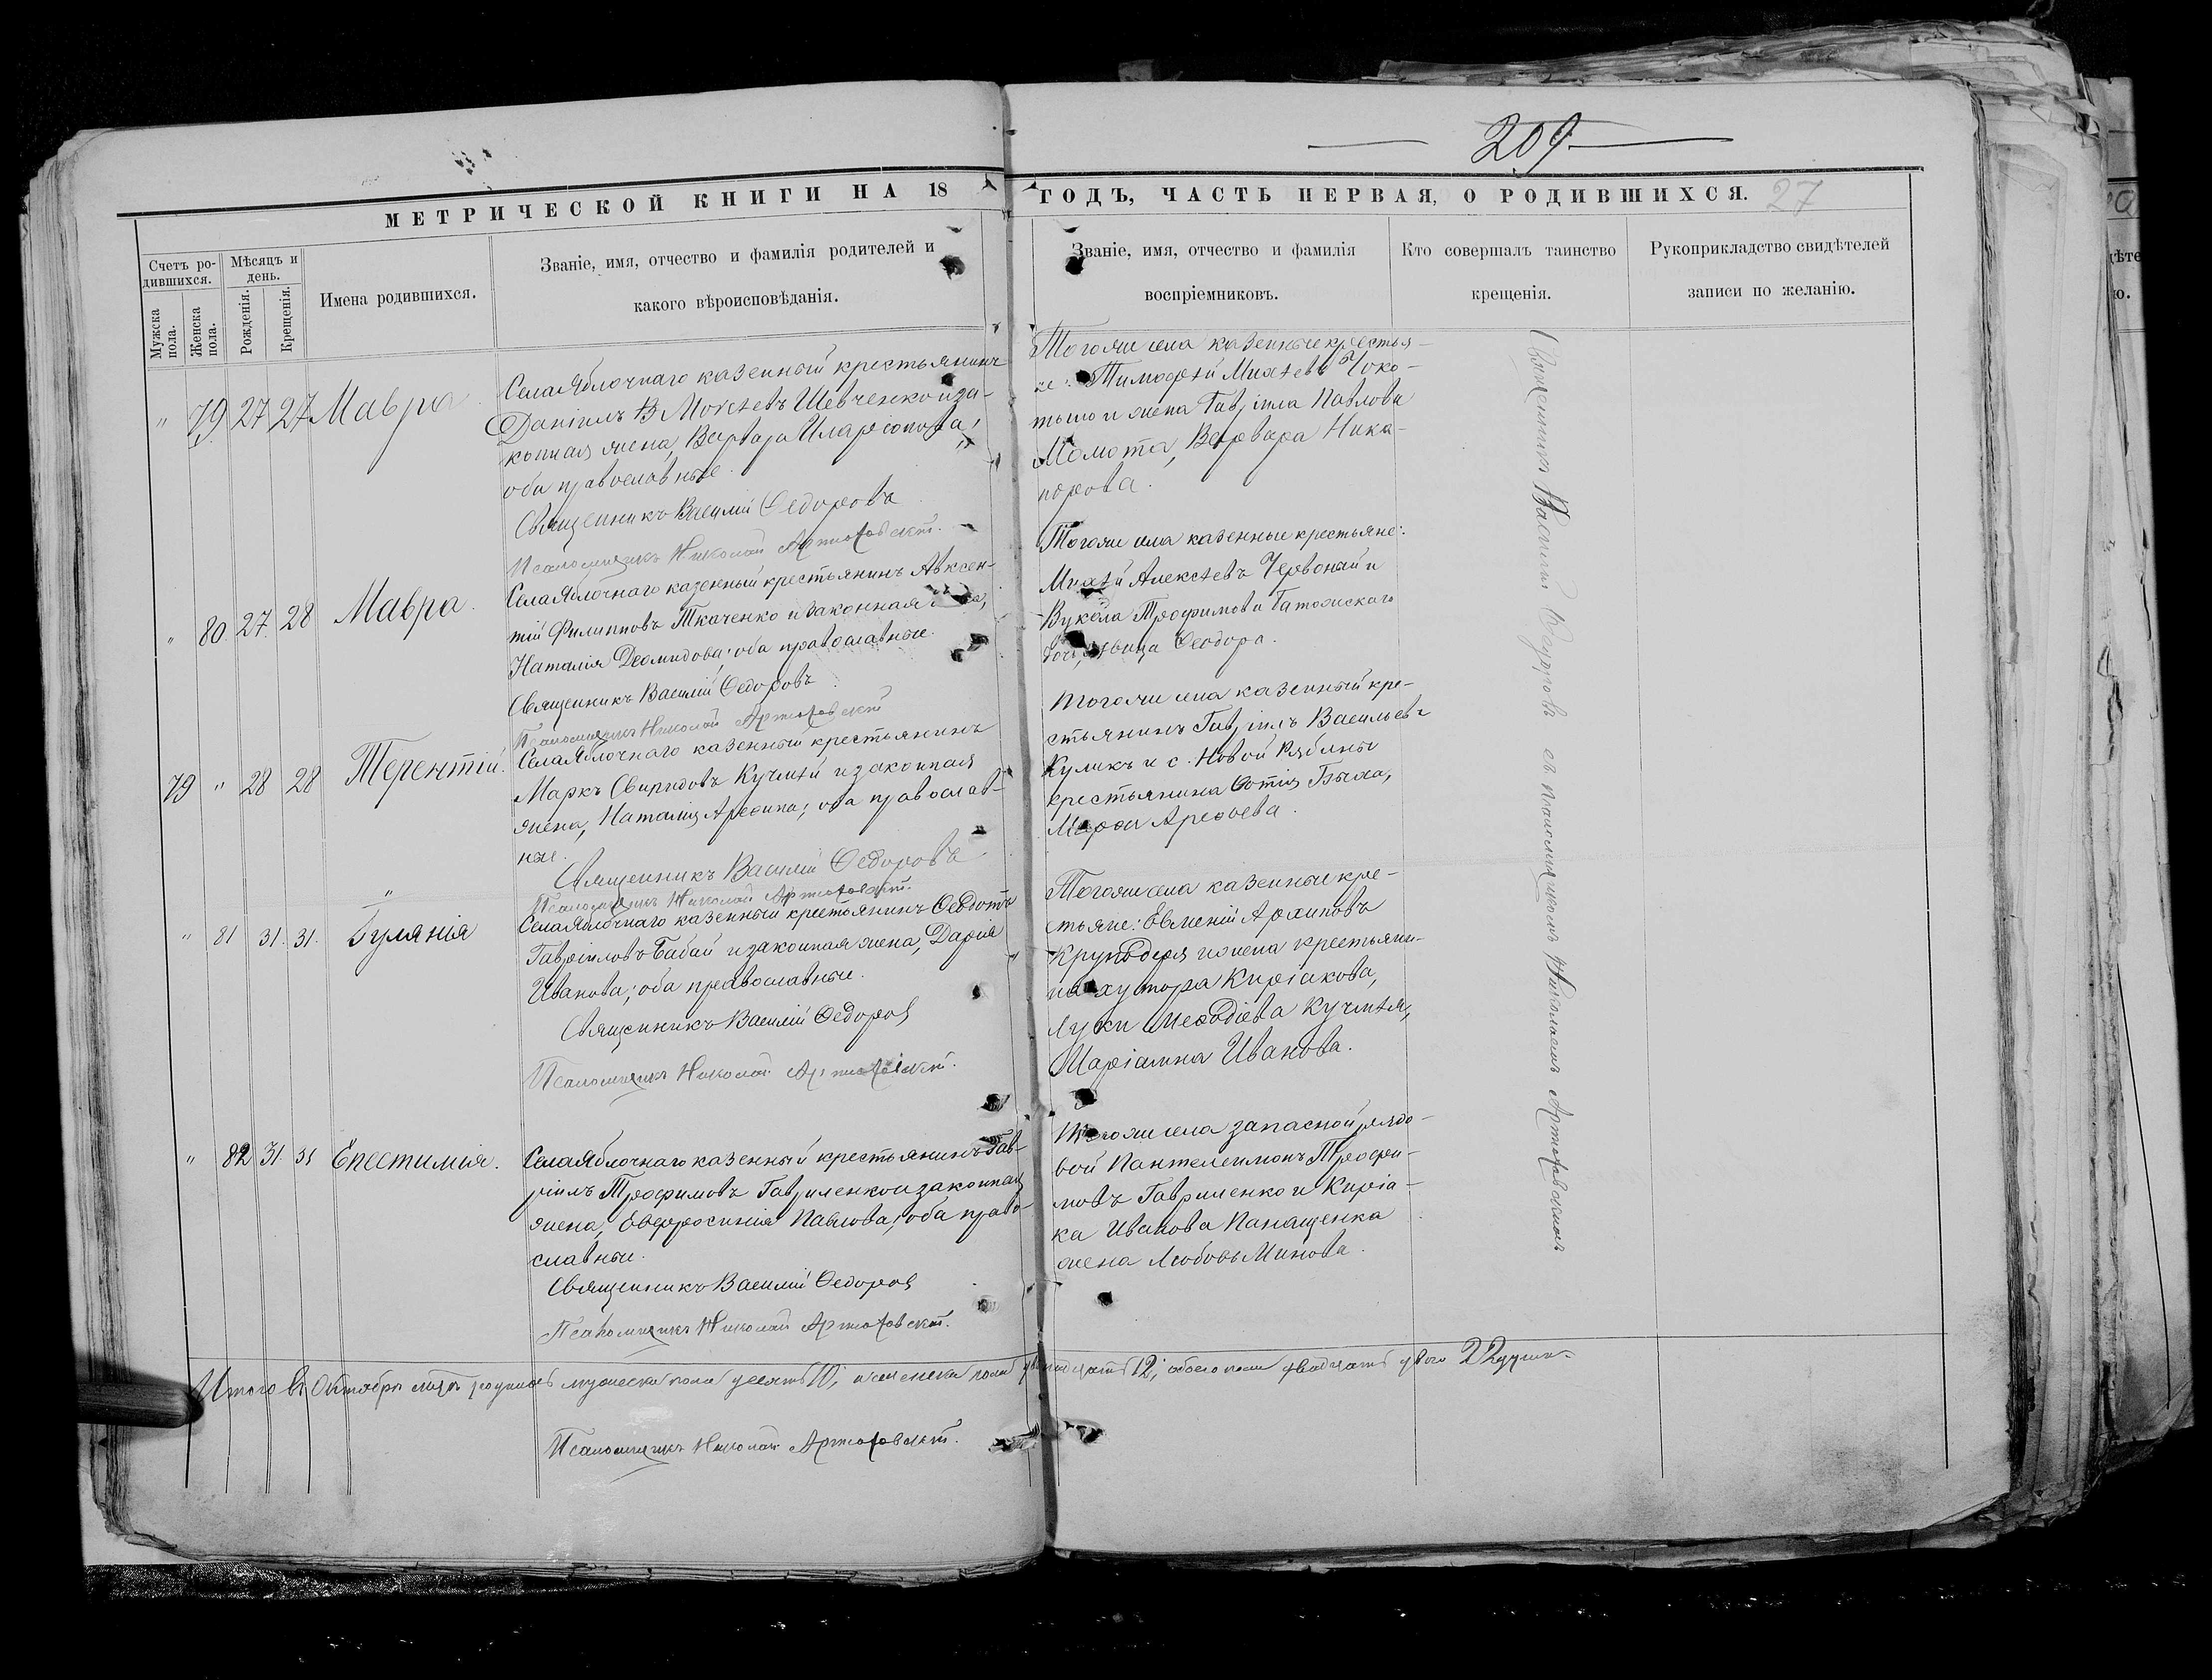 209
27
МЕТРИЧЕСКОЙ КНИГИ НА 18 ГОДЪ, ЧАСТЬ ПЕРВАЯ, О РОДИВШИХСЯ.
Счетъ ро-
дившихся.
Мужска
пола.
Женска
пола.
Мѣсяцъ и
день.
Рожденія.
Крещенія.
Имена родившихся.
Званіе, имя, отчество и фамилія родителей и
какого вѣроисповѣданія.
Званіе, имя, отчество и фамилія
воспріемниковъ.
Кто совершалъ таинство
крещенія.
Рукоприкладство свидѣтелей
записи по желанію.
" 79 27 27 Мавра
Села Яблочнаго казенный крестьянинъ
Даніилъ Моѵсеевъ Шевченко и за-
конная жена, Варвара Иларіонова;
оба православные.
Священникъ Василій Ѳедоровъ
Псаломщикъ Николай Артюховскій.
Тогоже села казенные крестья-
не: Тимоѳей Михеевъ Чоко-
тыло и жена Гавріила Павлова
Момота, Варвара Ника-
норова.
" 80. 27. 28 Мавра.
Села Яблочнаго казенный крестьянинъ Авксен-
тій Филипповъ Ткаченко и законная
Наталія Деомидова; оба православные.
Священникъ Василій Ѳедоровъ
Псаломщикъ Николай Артюховскій
Тогоже села казенные крестьяне:
Михей Алексеевъ Червоный и
Вукола Трофимова
дѣвица Ѳеодора.
79 " 28 28 Терентій.
Села Яблочнаго казенный крестьянинъ
Маркъ Свиридовъ Кучмѣй и законная
жена, Наталія Ареѳина; оба православ-
ные.
Священникъ Василій Ѳедоровъ
Псаломщикъ Николай Артюховскій.
Тогоже села казенный кре-
стьянинъ Гавріилъ Васильевъ
Куликъ и с. Новой Рябины
крестьянина Фотія Быха,
Марѳа Ареѳьева.
" 81 31. 31. Іуліянія
Села Яблочнаго казенный крестьянинъ Ѳеодотъ
Гавріиловъ Бабай и законная жена, Дарія
Иванова; оба православные.
Священникъ Василій Ѳедоровъ
Псаломщикъ Николай Артюховскій.
Тогоже села казенные кре-
стьяне: Евменій Архиповъ
Круподеря и жена крестьяни-
на хутора Киріакова,
Луки Меѳодіева Кучмѣя,
Маріамна Иванова.
" 82 31. 31 Епестимія.
Села Яблочнаго казенный крестьянинъ Гав-
ріилъ Трофимовъ Гавриленко и законная
жена, Евфросинія Павлова; оба право-
славные.
Священникъ Василій Ѳедоровъ
Псаломщикъ Николай Артюховскій.
Тогоже села запасной рядо-
вой Пантелеимонъ Трофи-
мовъ Гавриленко и Киріа-
ка Иванова Панащенка
жена Любовь Минова.
Священникъ Василій Ѳедоровъ съ псаломщикомъ Николаемъ Артюховскимъ
Итого въ Октябрѣ мѣсяцѣ родилось мужеска пола десять 10; женска пола двенадцать 12; обоего пола двадцать двое 22 души.
Псаломщикъ Николай Артюховскій.